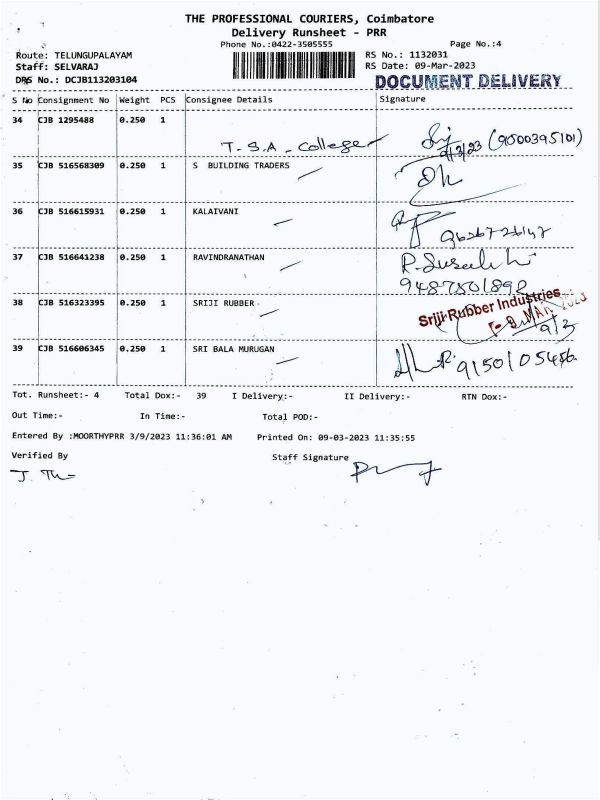 THE PROFESSIONAL COURIERS, Coimbatore
Delivery Runsheet - PRR
Phone No.:0422-3505555 Page No.:4
Route: TELUNGUPALAYAM RS No.: 1132031
Staff: SELVARAJ RS Date: 09-Mar-2023
DRS No.: DCJB113203104 DOCUMENT DELIVERY
S No Consignment No Weight PCS Consignee Details Signature
34 CJB 1295488 0.250 1
T.S.A - College 9/3/23 (9500395101)
35 CJB 516568309 0.250 1 S BUILDING TRADERS
36 CJB 516615931 0.250 1 KALAIVANI
9626726147
37 CJB 516641238 0.250 1 RAVINDRANATHAN
9487801892
38 CJB 516323395 0.250 1 SRIJI RUBBER
Sriji Rubber Industries
9 MAR 2023
9/3
39 CJB 516606345 0.250 1 SRI BALA MURUGAN
Tot. Runsheet:- 4 Total Dox:- 39 I Delivery:- II Delivery:- RTN Dox:-
Out Time:- In Time:- Total POD:-
Entered By :MOORTHYPRR 3/9/2023 11:36:01 AM Printed On: 09-03-2023 11:35:55
Verified By Staff Signature